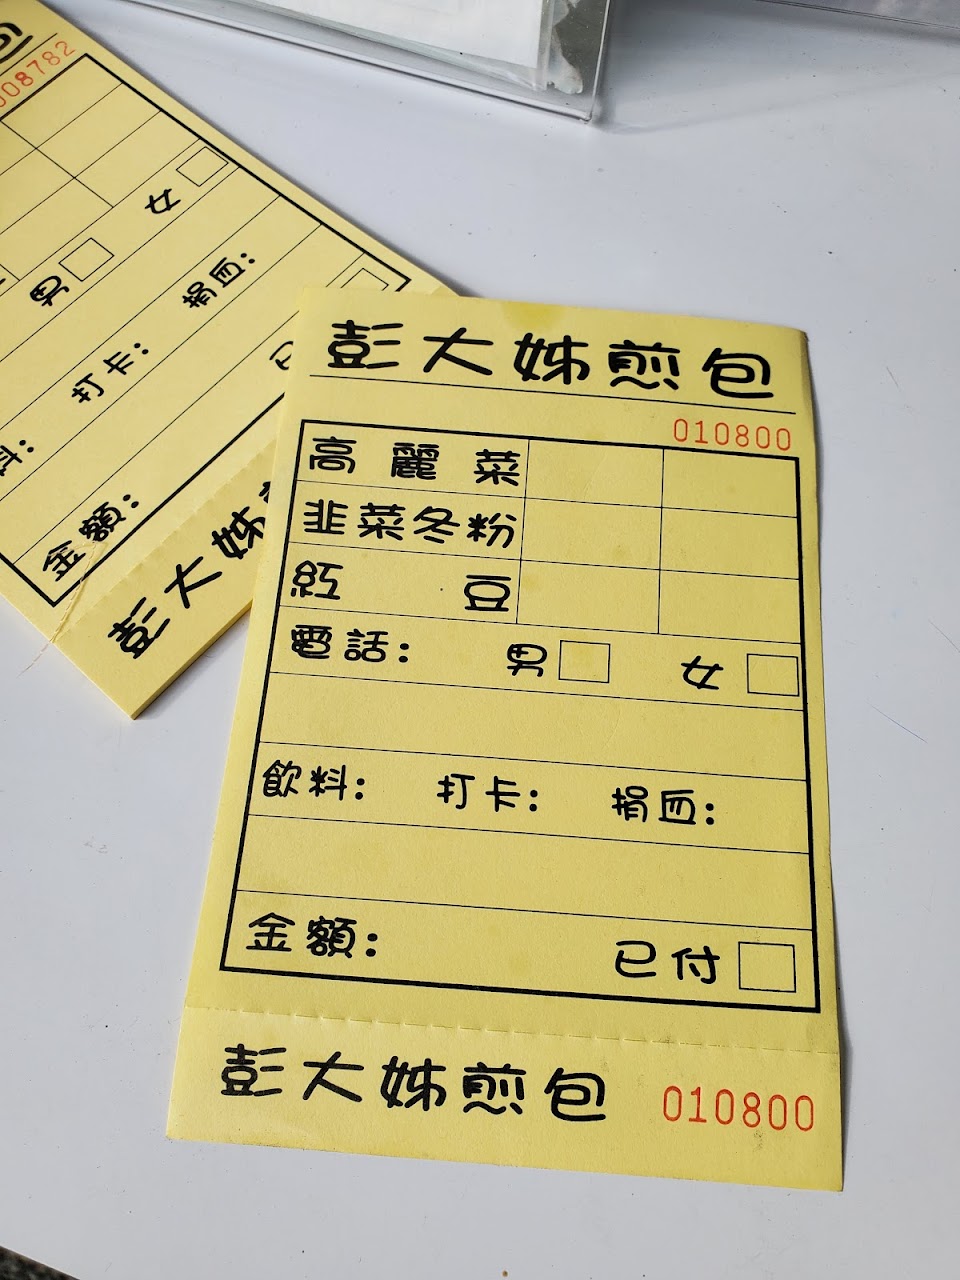 彭大姊煎包
010800
高麗菜
韭菜冬粉
紅豆
電話： 男□ 女□
飲料： 打卡： 捐血：
金額： 已付□
彭大姊煎包 010800
包
008782
男□ 女□
料： 打卡： 捐血：
金額： 已
彭大姊